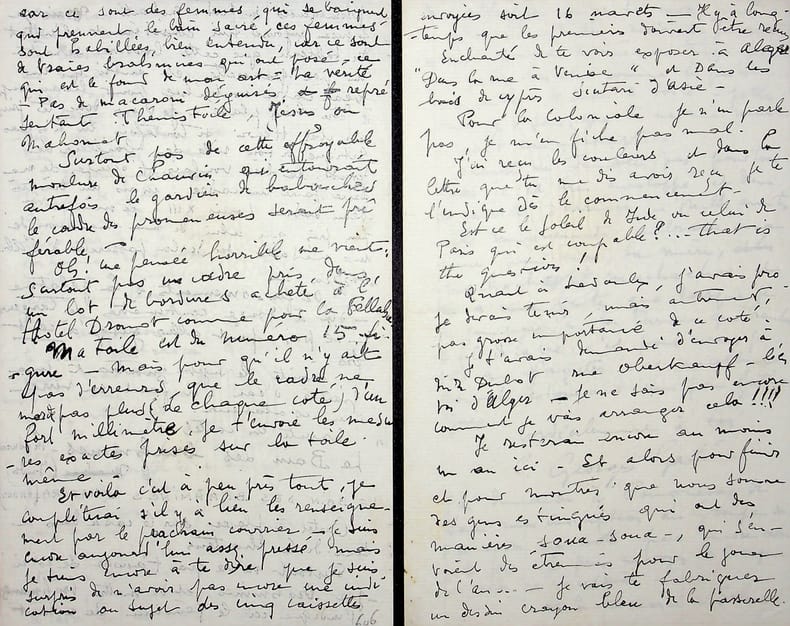 car ce sont des femmes, qui se baignent
qui prennent le bain sacré, ces femmes
sont habillées, bien entendu, car ce sont
de vraies brahmines qui ont posé, ce
qui est le fond de mon art - La vérité
- Pas de macaroni déguisés représ
sentant Thémistocle, Jésus ou
Mahomet
Surtout pas de cette effroyable
moulure de Chauvin qui entourait
autrefois le gardien de babouches
le cadre des promeneuses serait pré
férable,
Oh! une pensée horrible me vient:
Surtout pas un cadre pris dans
un lot de bordures acheté à l'
Hotel Drouot comme pour la Fellahine
Ma toile est du numéro 15 fi-
-gure - mais pour qu'il n'y ait
pas d'erreurs, que le cadre ne
morde pas plus (de chaque côté) d'un
fort millimètre, je t'envoie les mesu
-res exactes prises sur la toile
même.
Et voilà c'est à peu près tout, je
compléterai s'il y a lieu les renseigne-
ment par le prochain courrier - je suis
encore aujourd'hui assez pressé mais
je tiens encore à te dire que je suis
surpris de n'avoir pas encore une indi
cation au sujet des cinq caissettes
606
envoyées soit 16 - Il y a long-
-temps que les premiers doivent être
Enchanté de te voir exposer à Alger
"Dans la rue à Venise" et Dans les
bois de cyprès Scutari d'Asie -
Pour la coloniale je n'en parle
pas, je m'en fiche pas mal.
J'ai reçu les couleurs et dans la
lettre que tu me dis avoir reçu je te
l'indique dès le commencement -
Est ce le Soleil de Inde ou celui de
Paris qui est coupable? ... that is
the question!
Quant à j'avais pro
je serais tenu, mais autrement,
pas grosse importance de ce côté.
J t'avais demandé d'envoyer à
Dubot rue Oberkampf -
d'Alger - Je ne sais pas encore
comment je vais arranger cela!!!!
Je resterai encore au moins
un an ici - Et alors pour finir
et pour montrer que nous sommes
des gens estingués qui ont des
manières soua-soua -, qui s'en-
voient des étrennes pour le jour
de l'an... - je vais te fabriquer
un dessin crayon bleu de la passerelle.